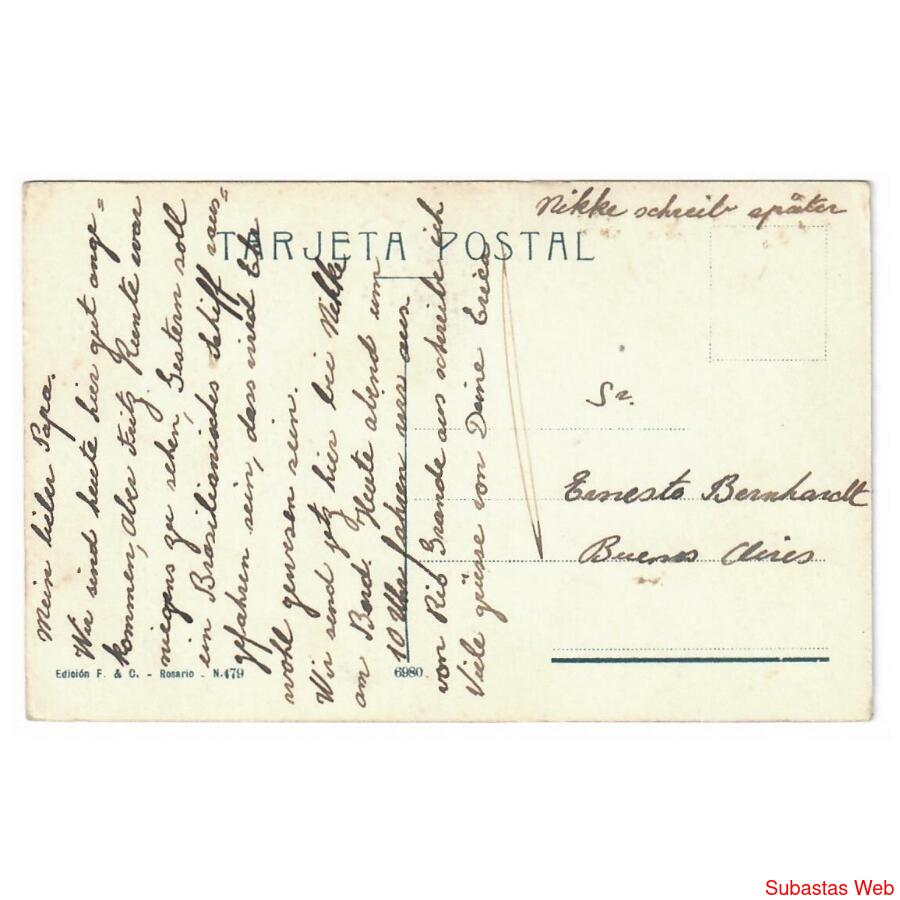 TARJETA POSTAL
Nikke schreib später
Mein lieber Papa.
Wir sind heute hier gut ange=
kommen, aber Fritz Kunte war
niegens zu sehen, Gestern soll
ein Brasilianisches schiff raus=
gfahren sein, dass wird Er
wohl gewesen sein.
Wir send jetz hier bei Nikke
am Bord. Heute abend um
10 Uhr fahren wir
von Rio Grande aus schreibe ich
Viele grüsse von Deine Erica
Sr.
Ernesto Bernhardt
Buenos Aires
Edición F. & C. - Rosario - N.479
6980
Subastas Web